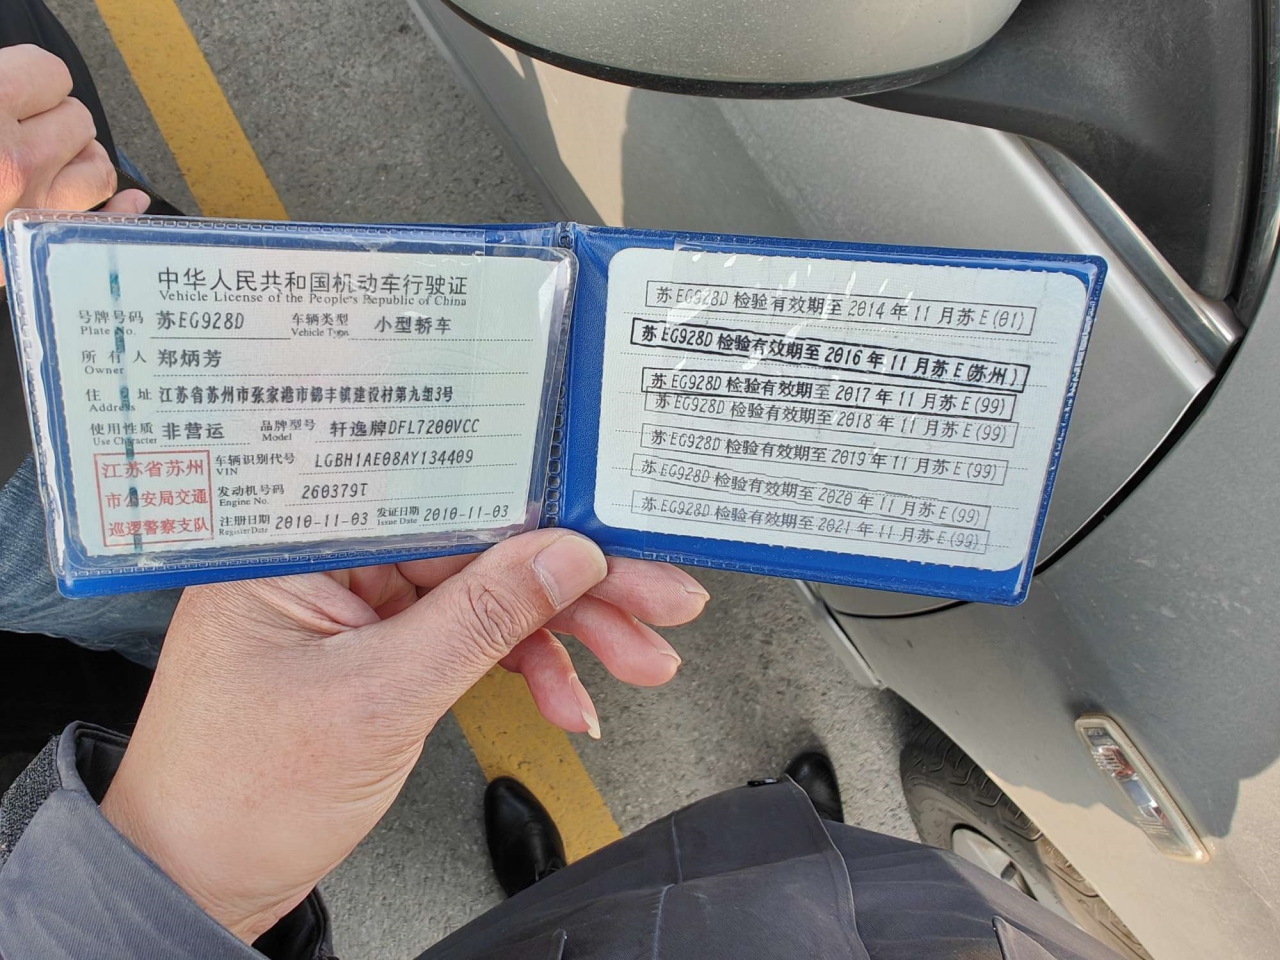 中华人民共和国机动车行驶证
Vehicle License of the People's Republic of China
号牌号码 苏EG928D 车辆类型 小型轿车
Plate No. Vehicle Type
所有人 郑炳芳
Owner
住址 江苏省苏州市张家港市鹤丰镇建设村第九组3号
Address
使用性质 非营运 品牌型号 轩逸牌DFL7200VCC
Use Character Model
江苏省苏州
市公安局交通
巡逻警察支队
车辆识别代号 LGBH1AE08AY134409
VIN
发动机号码 260379T
Engine No.
注册日期 2010-11-03 发证日期 2010-11-03
Register Date Issue Date
苏EG928D 检验有效期至 2014 年 11 月苏E(01)
苏EG928D 检验有效期至 2016 年 11 月苏E(苏州)
苏EG928D 检验有效期至 2017 年 11 月苏E(99)
苏EG928D 检验有效期至 2018 年 11 月苏E(99)
苏EG928D 检验有效期至 2019 年 11 月苏E(99)
苏EG928D 检验有效期至 2020 年 11 月苏E(99)
苏EG928D 检验有效期至 2021 年 11 月苏E(99)